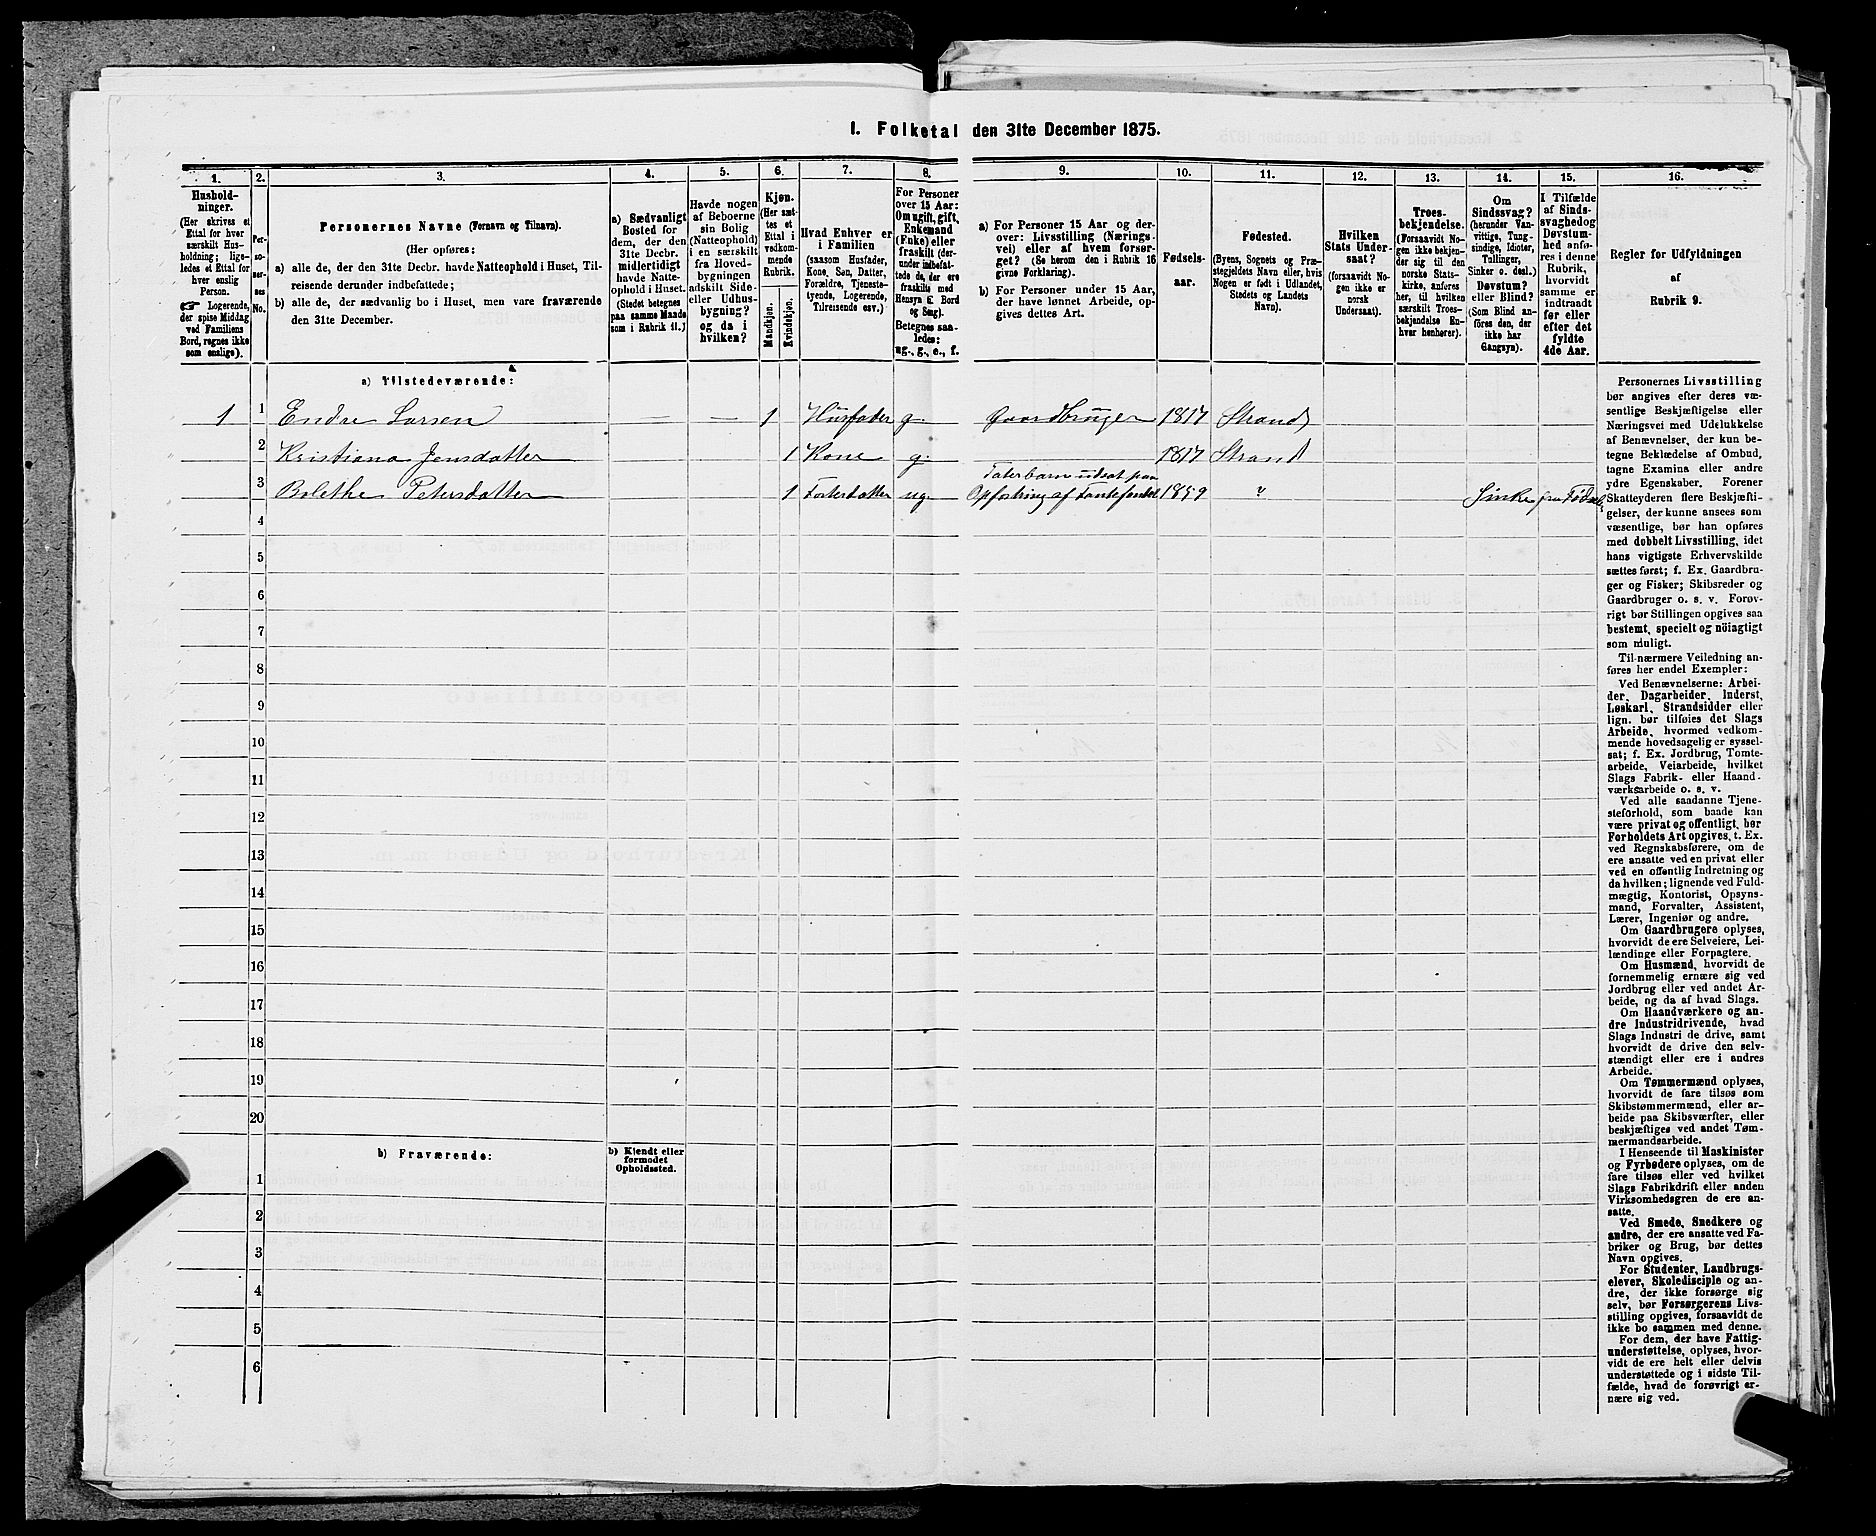 1. Folketal den 31te December 1875.
1.
2.
3.
4.
5.
6.
7.
8.
9.
10.
11.
12.
13.
14.
15.
16.
Hushold-
ninger.
(Her skrives et
Ettal for hver
særskilt Hus-
holdning; lige-
ledes et Ettal for
hver enslig
Person.
☞ Logerende,
der spise Middag
ved Familiens
Bord, regnes ikke
som enslige).
Per-
so-
ner-
nes
No.
Personernes Navne (Fornavn og Tilnavn).
(Her opføres:
a) alle de, der den 31te Decbr. havde Natteophold i Huset, Til-
reisende derunder indbefattede;
b) alle de, der sædvanlig bo i Huset, men vare fraværende
den 31te December.
a) Sædvanligt
Bosted for
dem, der den
31te Decbr.
midlertidigt
havde Natte-
ophold i Huset.
(Stedet betegnes
paa samme Maade
som i Rubrik 11.)
Havde nogen
af Beboerne
sin Bolig
(Natteophold)
i en særskilt
fra Hoved-
bygningen
adskilt Side-
eller Udhus-
bygning?
og da i
hvilken?
Kjøn.
(Her sæt-
tes et
Ettal i
vedkom-
mende
Rubrik.
Mandkjøn.
Kvindekjøn.
Hvad Enhver er
i Familien
(saasom Husfader,
Kone, Søn, Datter,
Forældre, Tjeneste-
tyende, Logerende,
Tilreisende osv.)
For Personer
over 15 Aar:
Om ugift, gift,
Enkemand
(Enke) eller
fraskilt (der-
under indbefat-
tede de, der ere
fraskilte med
Hensyn t. Bord
og Seng).
Betegnes saa-
ledes:
ug., g., e., f.
a) For Personer 15 Aar og der-
over: Livsstilling (Nærings-
vei) eller af hvem forsør-
get? (Se herom den i Rubrik 16
givne Forklaring).
b) For Personer under 15 Aar,
der have lønnet Arbeide, op-
gives dettes Art.
Fødsels-
aar.
Fødested.
(Byens, Sognets og Præ-
stegjeldets Navn eller, hvis
Nogen er født i Udlandet,
Stedets og Landets
Navn).
Hvilken
Stats Under-
saat?
(forsaavidt No-
gen ikke er
norsk
Undersaat).
Troes-
bekjendelse.
(Forsaavidt No-
gen ikke bekjen-
der sig til den
norske Stats-
kirke, anføres
her, til hvilken
særskilt Troes-
bekjendelse En-
hver henhører).
Om
Sindssvag?
(herunder Van-
vittige, Tung-
sindige, Idioter,
Tullinger,
Sinker o. desl.)
Døvstum?
eller Blind?
(Som Blind an-
føres den, der
ikke har
Gangsyn).
I Tilfælde
af Sinds-
svaghed og
Døvstum-
hed anfø-
res i denne
Rubrik,
hvorvidt
samme er
indtraadt
før eller
efter det
fyldte
4de Aar.
Regler for Udfyldningen
af
Rubrik 9.
a) Tilstedeværende:
1 1 Endre Larsen — — 1 Husfader g. Gaardbruger 1817 Strand
2 Kristiana Jensdatter 1 Kone g. 1817 Strand
3 Bolethe Petersdatter 1 Fosterdatter ug. Taterbarn udsat paa
Opfostring af Fantefondet 1859 " Sinke fra Fødsel
4
5
6
7
8
9
10
11
12
13
14
15
16
17
18
19
20
b) Fraværende:
b) Kjendt eller
formodet
Opholdssted.
1
2
3
4
5
6
Personernes Livsstilling
bør angives efter deres væ-
sentlige Beskjæftigelse eller
Næringsvei med Udelukkelse
af Benævnelser, der kun be-
tegne Beklædelse af Ombud,
tagne Examina eller andre
ydre Egenskaber. Forener
Skatteyderen flere Beskjæfti-
gelser, der kunne ansees som
væsentlige, bør han opføres
med dobbelt Livsstilling, idet
hans vigtigste Erhvervskilde
sættes først; f. Ex. Gaardbru-
ger og Fisker; Skibsreder og
Gaardbruger o. s. v. Forøv-
rigt bør Stillingen opgives saa
bestemt, specielt og nöiagtigt
som muligt.
Til nærmere Veiledning an-
føres her endel Exempler:
Ved Benævnelserne: Arbei-
der, Dagarbeider, Inderst,
Løskarl, Strandsidder eller
lign. bør tilføies det Slags
Arbeide, hvormed vedkom-
mende hovedsagelig er syssel-
sat; f. Ex. Jordbrug, Tomte-
arbeide, Veiarbeide, hvilket
Slags Fabrik- eller Haand-
værksarbeide o. s. v.
Ved alle saadanne Tjene-
steforhold, som baade kan
være privat og offentligt, bør
Forholdets Art opgives, t. Ex.
ved Regnskabsførere, om de
ere ansatte ved en privat eller
ved en offentlig Indretning og
da hvilken; lignende ved Fuld-
mægtig, Kontorist, Opsyns-
mand, Forvalter, Assistent,
Lærer, Ingeniør og andre.
Om Gaardbrugere oplyses,
hvorvidt de ere Selveiere, Lei-
lændinge eller Forpagtere.
Om Husmænd, hvorvidt de
fornemmelig ernære sig ved
Jordbrug eller ved andet Ar-
beide, og da af hvad Slags.
Om Haandværkere og an-
dre Industridrivende, hvad
Slags Industri de drive, samt
hvorvidt de drive den selv-
stændigt eller ere i andres
Arbeide.
Om Tømmermænd oplyses,
hvorvidt de fare tilsøs som
Skibstømmermænd, eller ar-
beide paa Skibsværfter, eller
beskjæftiges ved andet Tøm-
mermandsarbeide.
I Henseende til Maskinister
og Fyrbødere oplyses, om de
fare tilsøs eller ved hvilket
Slags Fabrikdrift eller anden
Virksomhedsgren de ere an-
satte.
Ved Smede, Snedkere og
andre, der ere ansatte ved Fa-
briker og Brug, bør dettes
Navn opgives.
For Studenter, Landbrugs-
elever, Skoledisciple og an-
dre, der ikke forsørge sig
selv, bør Forsørgerens Livs-
stilling opgives, forsaavidt de
ikke bo sammen med denne.
For dem, der have Fattig-
understøttelse, oplyses, hvor-
vidt de ere helt eller delvis
understøttede og i sidste Til-
fælde, hvad de forøvrigt er-
nære sig ved.